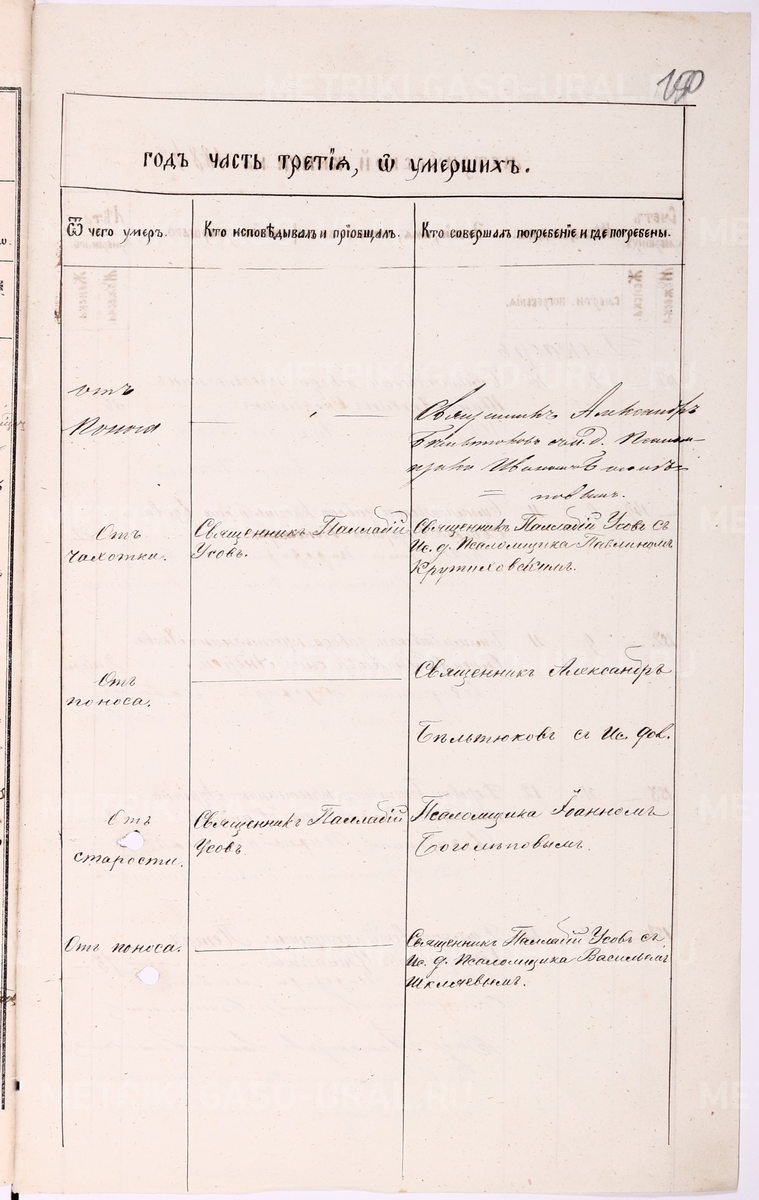 150
годъ часть третія, ѿ умершихъ.
Ѿ чего умеръ.
Кто исповѣдывалъ и пріобщалъ.
Кто совершалъ погребеніе и где погребены.
отъ
поноса
Священникъ Александръ
Бѣльтюковъ
Отъ
чахотки.
Священникъ Палладій
Усовъ.
Священникъ Палладій Усовъ съ
Ис. д. Псаломщика Павлиномъ
Крутиховскимъ.
Отъ
поноса.
Священникъ Александръ
Бѣльтюковъ съ Ис. дол.
Отъ
старости.
Священникъ Палладій
Усовъ
Псаломщика Іоанномъ
Боголѣповымъ.
Отъ поноса.
Священникъ Палладій Усовъ съ
Ис. д. Псаломщика Васильемъ
Шкляевымъ.